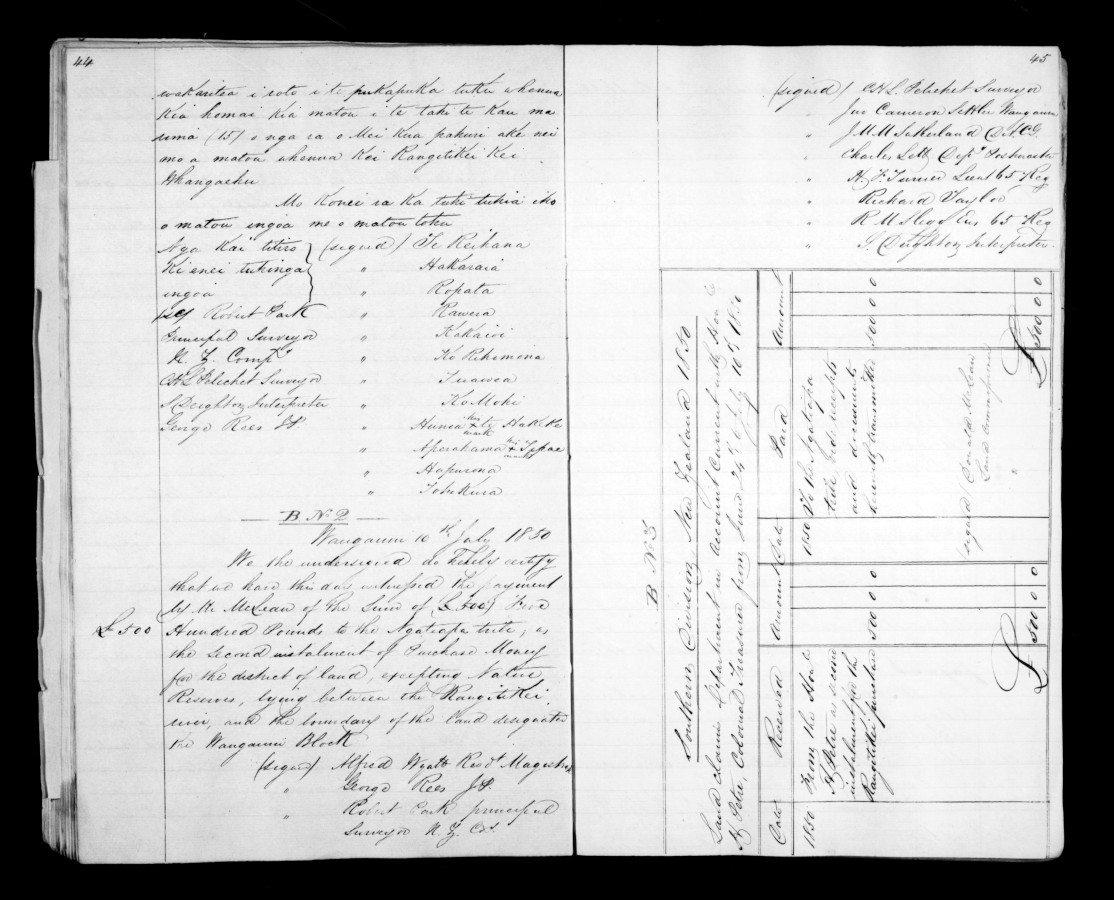 44
wakaritea i roto i te pukapuka tuku whenua
Kia homai kia matou i te tahi te kau ma
uma (15) o nga ra o Mei Kua pahure ake nei
mo a matou whenua Koi Rangitikei Kei
Whangaehu
Mo Konei ra Ka tuhi tuhia iho
o matou ingoa me o matou tohu
Nga Kai titiro (signed) Te Keihana
Ki enei tuhinga " Hakaraia
ingoa " Ropata
sg Robert Park " Rawera
Principal Surveyor " Kakaioi
N. Z. Comp.y " Ko Rihimona
CHL Pelichet Surveyor " Tuawea
S Deighton Interpreter " Ko Mohi
George Rees JP. " Hunia his + mark te Hakeke
" Aperahama his + mark Tipae
" Hapurona
" Tohikura
B. No 2
Wanganui 10th July 1850
We the undersigned do hereby certify
that we have this day witnessed the payment
by Mr McLean of the Sum of (£500) Five
£500 Hundred Pounds to the Ngatiapa tribe, as
the second instalment of Purchase Money
for the district of land, excepting Native
Reserves, lying between the Rangitikei
river, and the boundary of the Land designated
the Wanganui Block
(signed) Alfred Wyatt Resdt Magistrate
" George Rees JP.
" Robert Park principal
Surveyor N. Z. Co.
45
(signed) CHL Pelichet Surveyor
" Jno Cameron Settler Wanganui
" J. M. M Sutherland
" Charles Lett Depy Postmaster
" H. F. Turner Lieut 65 Reg
" Richard Taylor
" Ens 65 Reg
" S. Deighton Interpreter
B No 3
Southern Division New Zealand 1850
Land Claims Department in Account Current with Honble
H Petre, Colonial Treasurer from June 24th to July 10th 1850
Date Received Amount Date Paid Amount
1850 From the Honble
H Petre as second
instalment for the
Rangitikei purchase 500 0 0
1850 To the Ngatiapa
tribe as receipts
and documents
herewith transmitted 500 0 0
(signed) Donald McLean
Land Commissioner
"
£ 500 0 0
£ 500 0 0